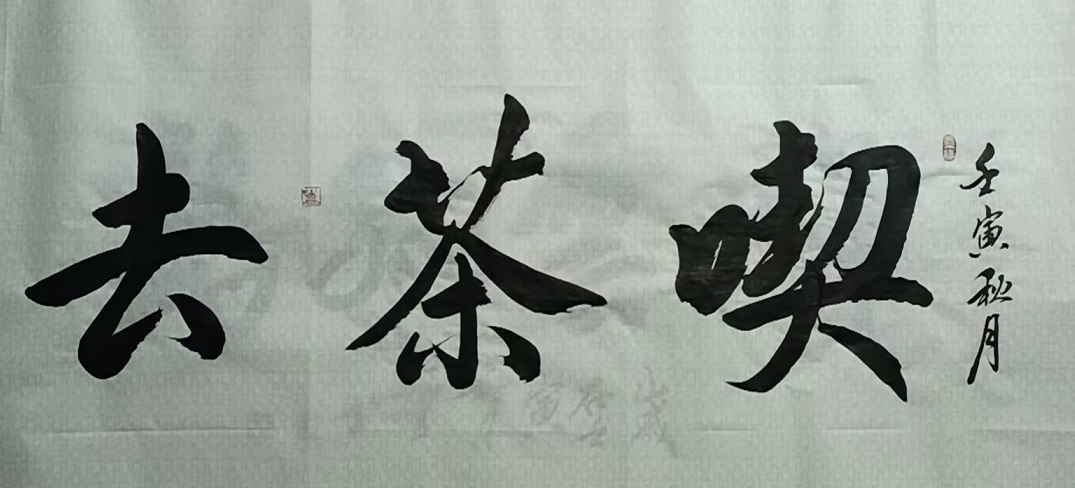 壬寅秋月
喫茶去